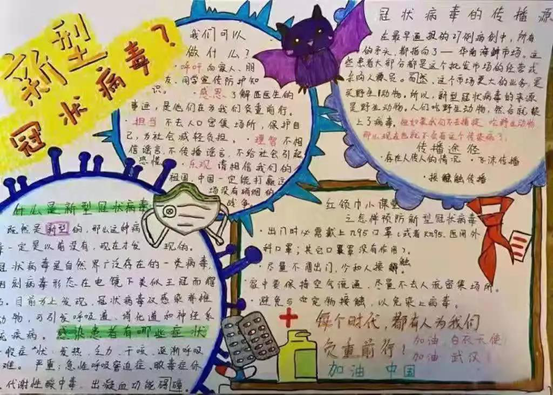 新型
冠状病毒？
我们可以
做什么？
·呼吁 向家人、朋
友、同学宣传防护知
识。·感恩 了解医医生的
事迹,是他们在为我们负重前行。
·担当 不去人口密集场所,保护自
己,为社会减轻负担。·理智 不相
信谣言,不传播谣言,不给社会引起
恐慌。·乐观 请相信我们的
祖国,中国一定能打赢这
场没有硝烟的
战争
冠状病毒的传播源
在最早通报的41例病例中,所有
的矛头,都指向了一华南海鲜市场。
这些患者大部分都是这个批发市场的任意
去向人群。
野生动物。所以,新型冠状病毒的来源
是野生动物。人们吃野生动物,
上了病毒。
传播途径
·存在人传人的情况 ·飞沫传播
·接触触传播
什么是新型冠状病毒
既然是新型的,那么这种病
毒一定是以前没有,现在才发现的。
冠状病毒是自然界广泛存在的一类病毒,
因刻病毒形态在电镜下类似王冠而得
名。目前为止发现,冠状病毒仅感染脊椎
动物,可引发呼吸道、消化道和神经系
统疾病。感染患者有哪些症状
一般症状:发热、乏力、干咳、逐渐呼吸
困难。严重:急性呼吸窘迫症、脓毒症休
克、代谢性酸中毒、出凝血功能碍障
红领巾小课堂
三怎样预防新型冠状病毒
·出门时必意戴上N95口罩(或者N95医用外
科口罩;其它口罩罩没有作用)。
·尽量不随出门,个和人接触
·室中要保持空气流通,尽量不去人流密集场所。
·避免与宠物接触,以免染上病毒。
每个时代,都有人为我们
负重前行!
加油 白衣天使
加油 武汉
加油 中国